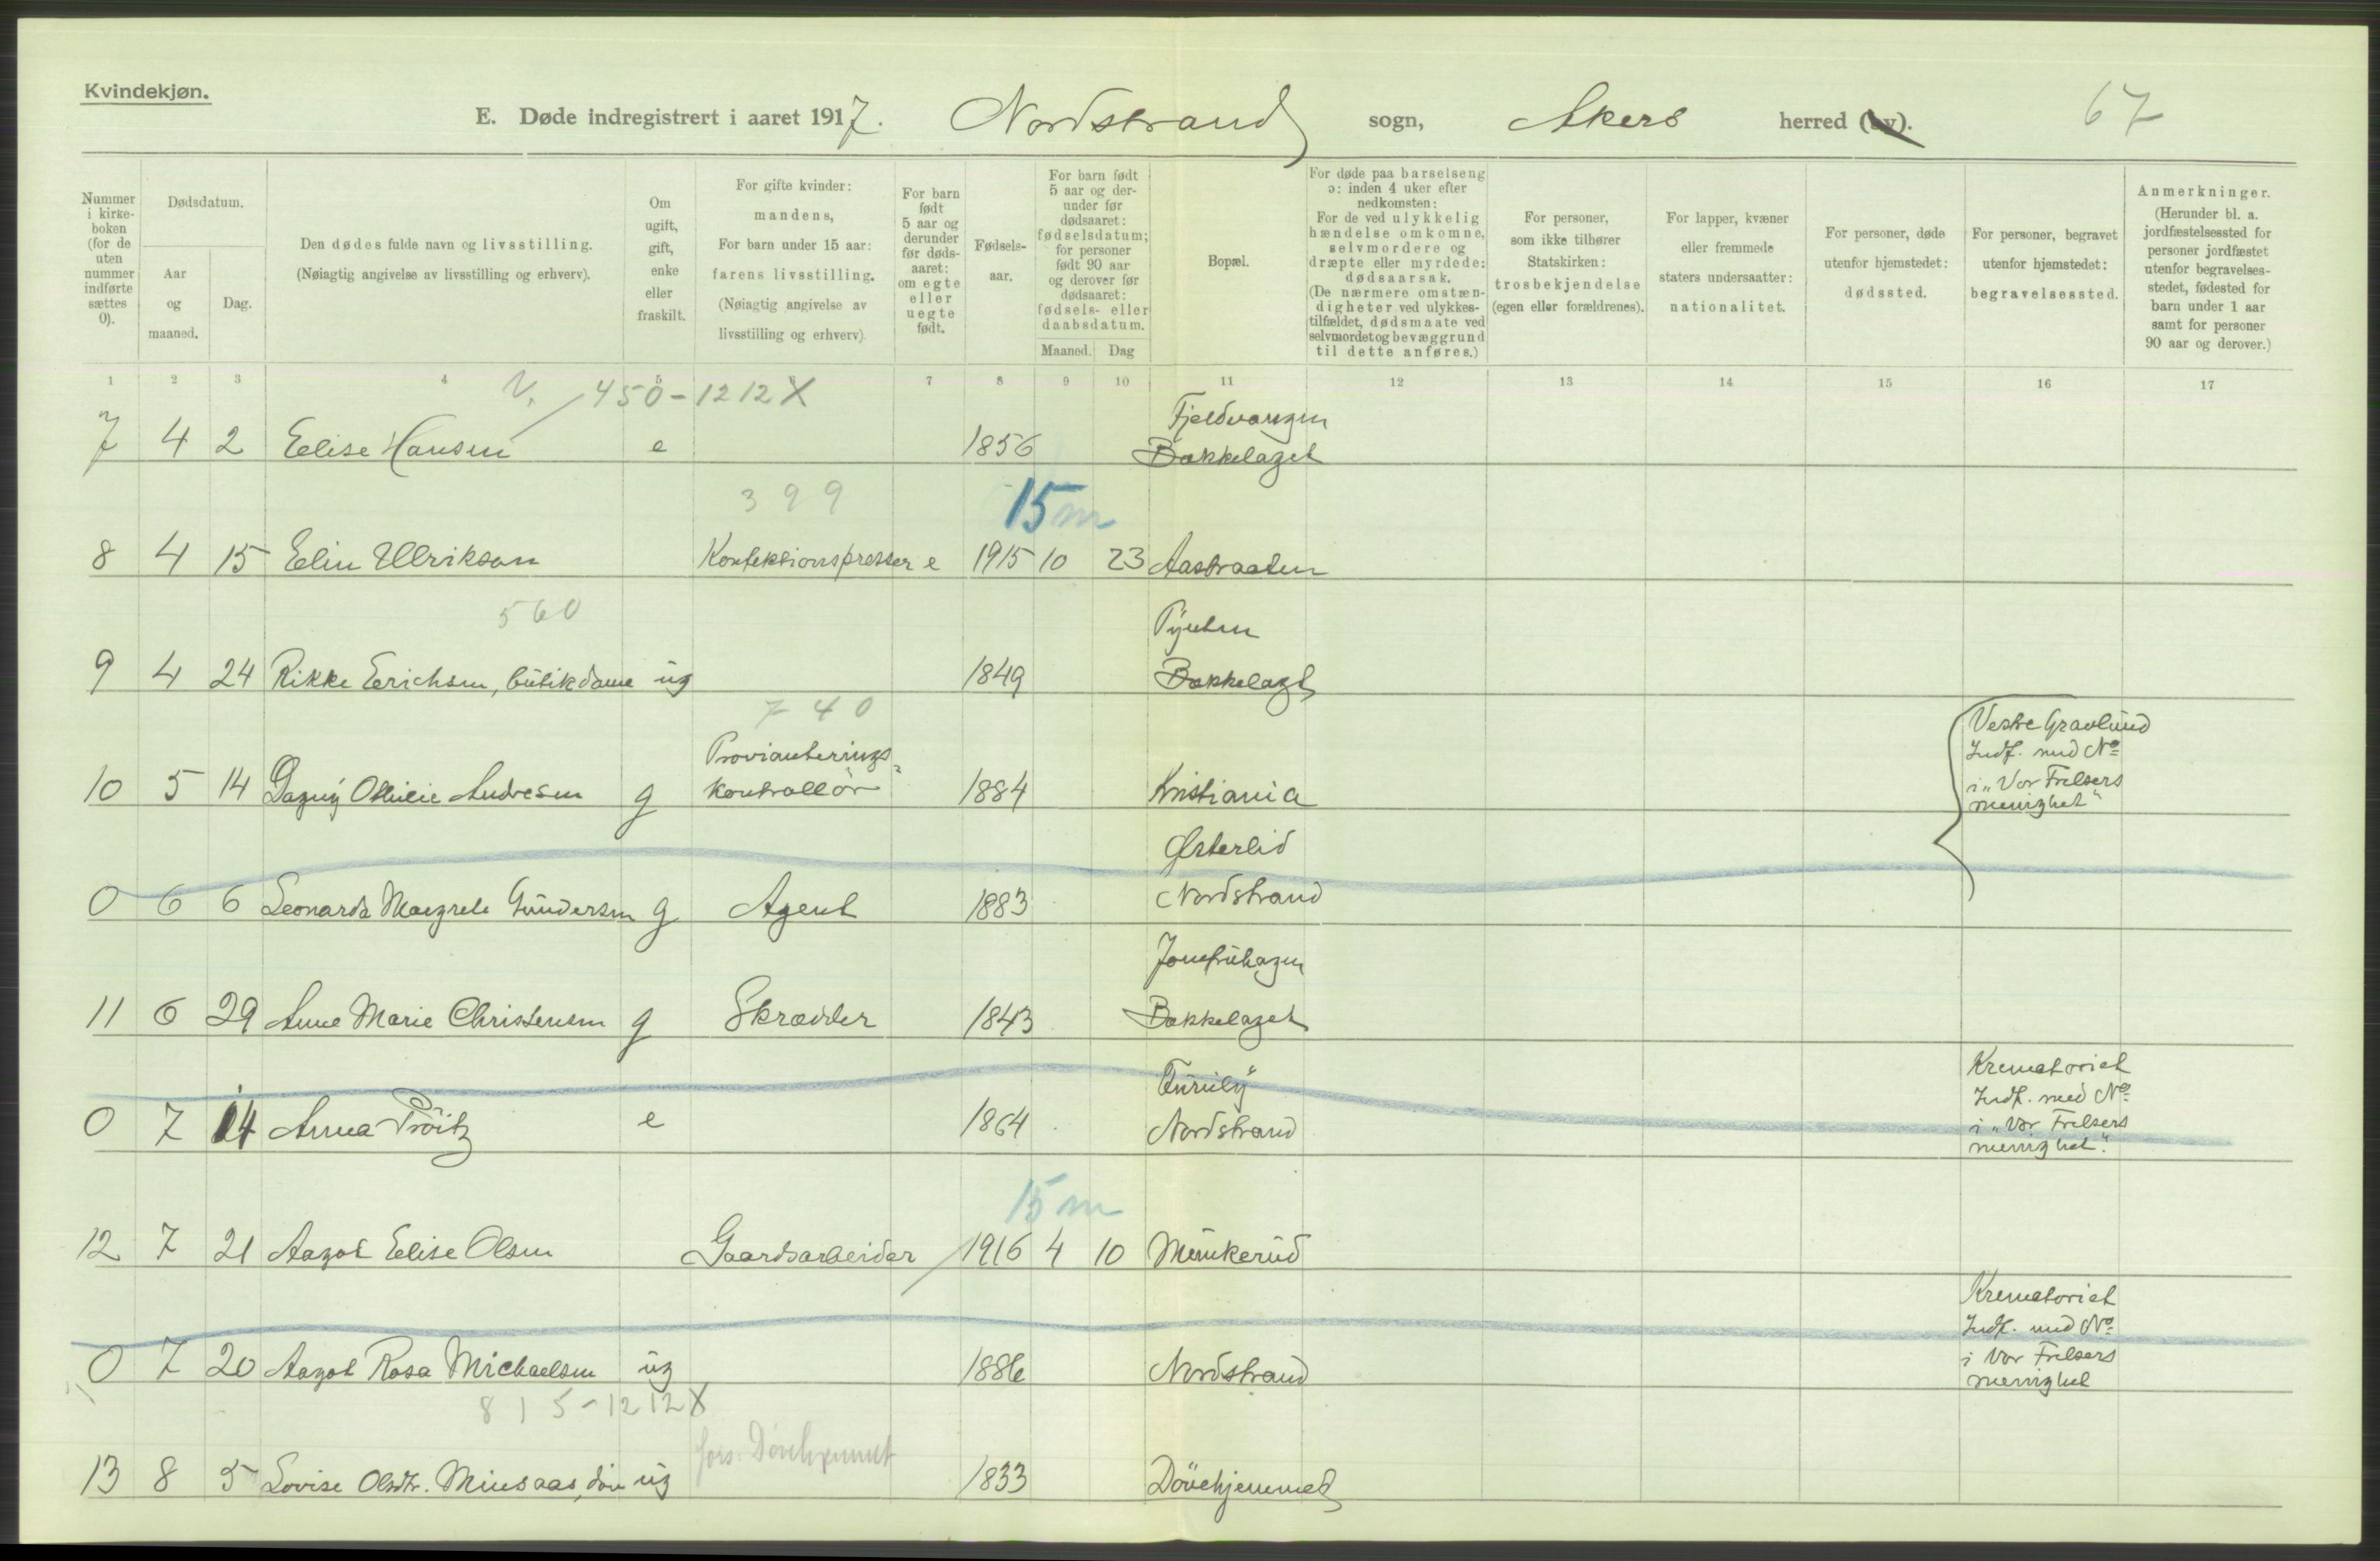 Kvindekjøn.
E. Døde indregistrert i aaret 1917. Nordstrand sogn, Akers herred (by). 67
Nummer i kirke-boken (for de uten nummer indførte sættes 0).
Dødsdatum.
Aar og maaned.
Dag.
Den dødes fulde navn og livsstilling.
(Nøiagtig angivelse av livsstilling og erhverv).
Om ugift, gift, enke eller fraskilt.
For gifte kvinder: mandens,
For barn under 15 aar: farens livsstilling.
(Nøiagtig angivelse av livsstilling og erhverv)
For barn født 5 aar og derunder før døds-aaret: om egte eller uegte født.
Fødsels-aar.
For barn født 5 aar og der-under før dødsaaret: fødselsdatum; for personer født 90 aar og derover før dødsaaret: fødsels- eller daabsdatum.
Maaned. Dag
Bopæl.
For døde paa barselseng ɔ: inden 4 uker efter nedkomsten:
For de ved ulykkelig hændelse omkomne, selvmordere og dræpte eller myrdede: dødsaarsak.
(De nærmere omstæn-digheter ved ulykkes-tilfældet, dødsmaate ved selvmordet og bevæggrund til dette anføres.)
For personer, som ikke tilhører Statskirken: trosbekjendelse (egen eller forældrenes).
For lapper, kvæner eller fremmede staters undersaatter: nationalitet.
For personer, døde utenfor hjemstedet: dødssted.
For personer, begravet utenfor hjemstedet: begravelsessted.
Anmerkninger.
(Herunder bl. a. jordfæstelsessted for personer jordfæstet utenfor begravelses-stedet, fødested for barn under 1 aar samt for personer 90 aar og derover.)
1 2 3 4 5 6 7 8 9 10 11 12 13 14 15 16 17
V. 450-1212X
Fjeldvangen
7 4 2 Elise Hansen e 1856 Bækkelaget
399 15 m
8 4 15 Elin Ulrikson Konfektionspresser e 1915 10 23 Aastraaten
560 Pynten
9 4 24 Rikke Erichsen, butikdame ug 1849 Bækkelaget
740
Provianterings-
10 5 14 Dagny Ottilie Andresen g kontrollør 1884 Kristiania
Vestre Gravlund
Indf. med No
i "Vor Frelsers
menighet"
Østerlid
0 6 6 Leonarda Margrete Gundersen g Agent 1883 Nordstrand
Jomfruhagen
11 6 29 Anne Marie Christensen g Skrædder 1843 Bækkelaget
Furuly
0 7 14 Anna Pröitz e 1864 Nordstrand
Krematoriet
Indf. med No
i "Vor Frelsers
menighet".
15 m
12 7 21 Aagot Elise Olsen Gaardsarbeider / 1916 4 10 Munkerud
0 7 20 Aagot Rosa Michaelsen ug 1886 Nordstrand
Krematoriet
Indf. med No
i Vor Frelsers
menighet
815-1212X
fors. Dövehjemmet
13 8 5 Lovise Olsdtr. Miesaas, döv ug 1833 Dövehjemmet